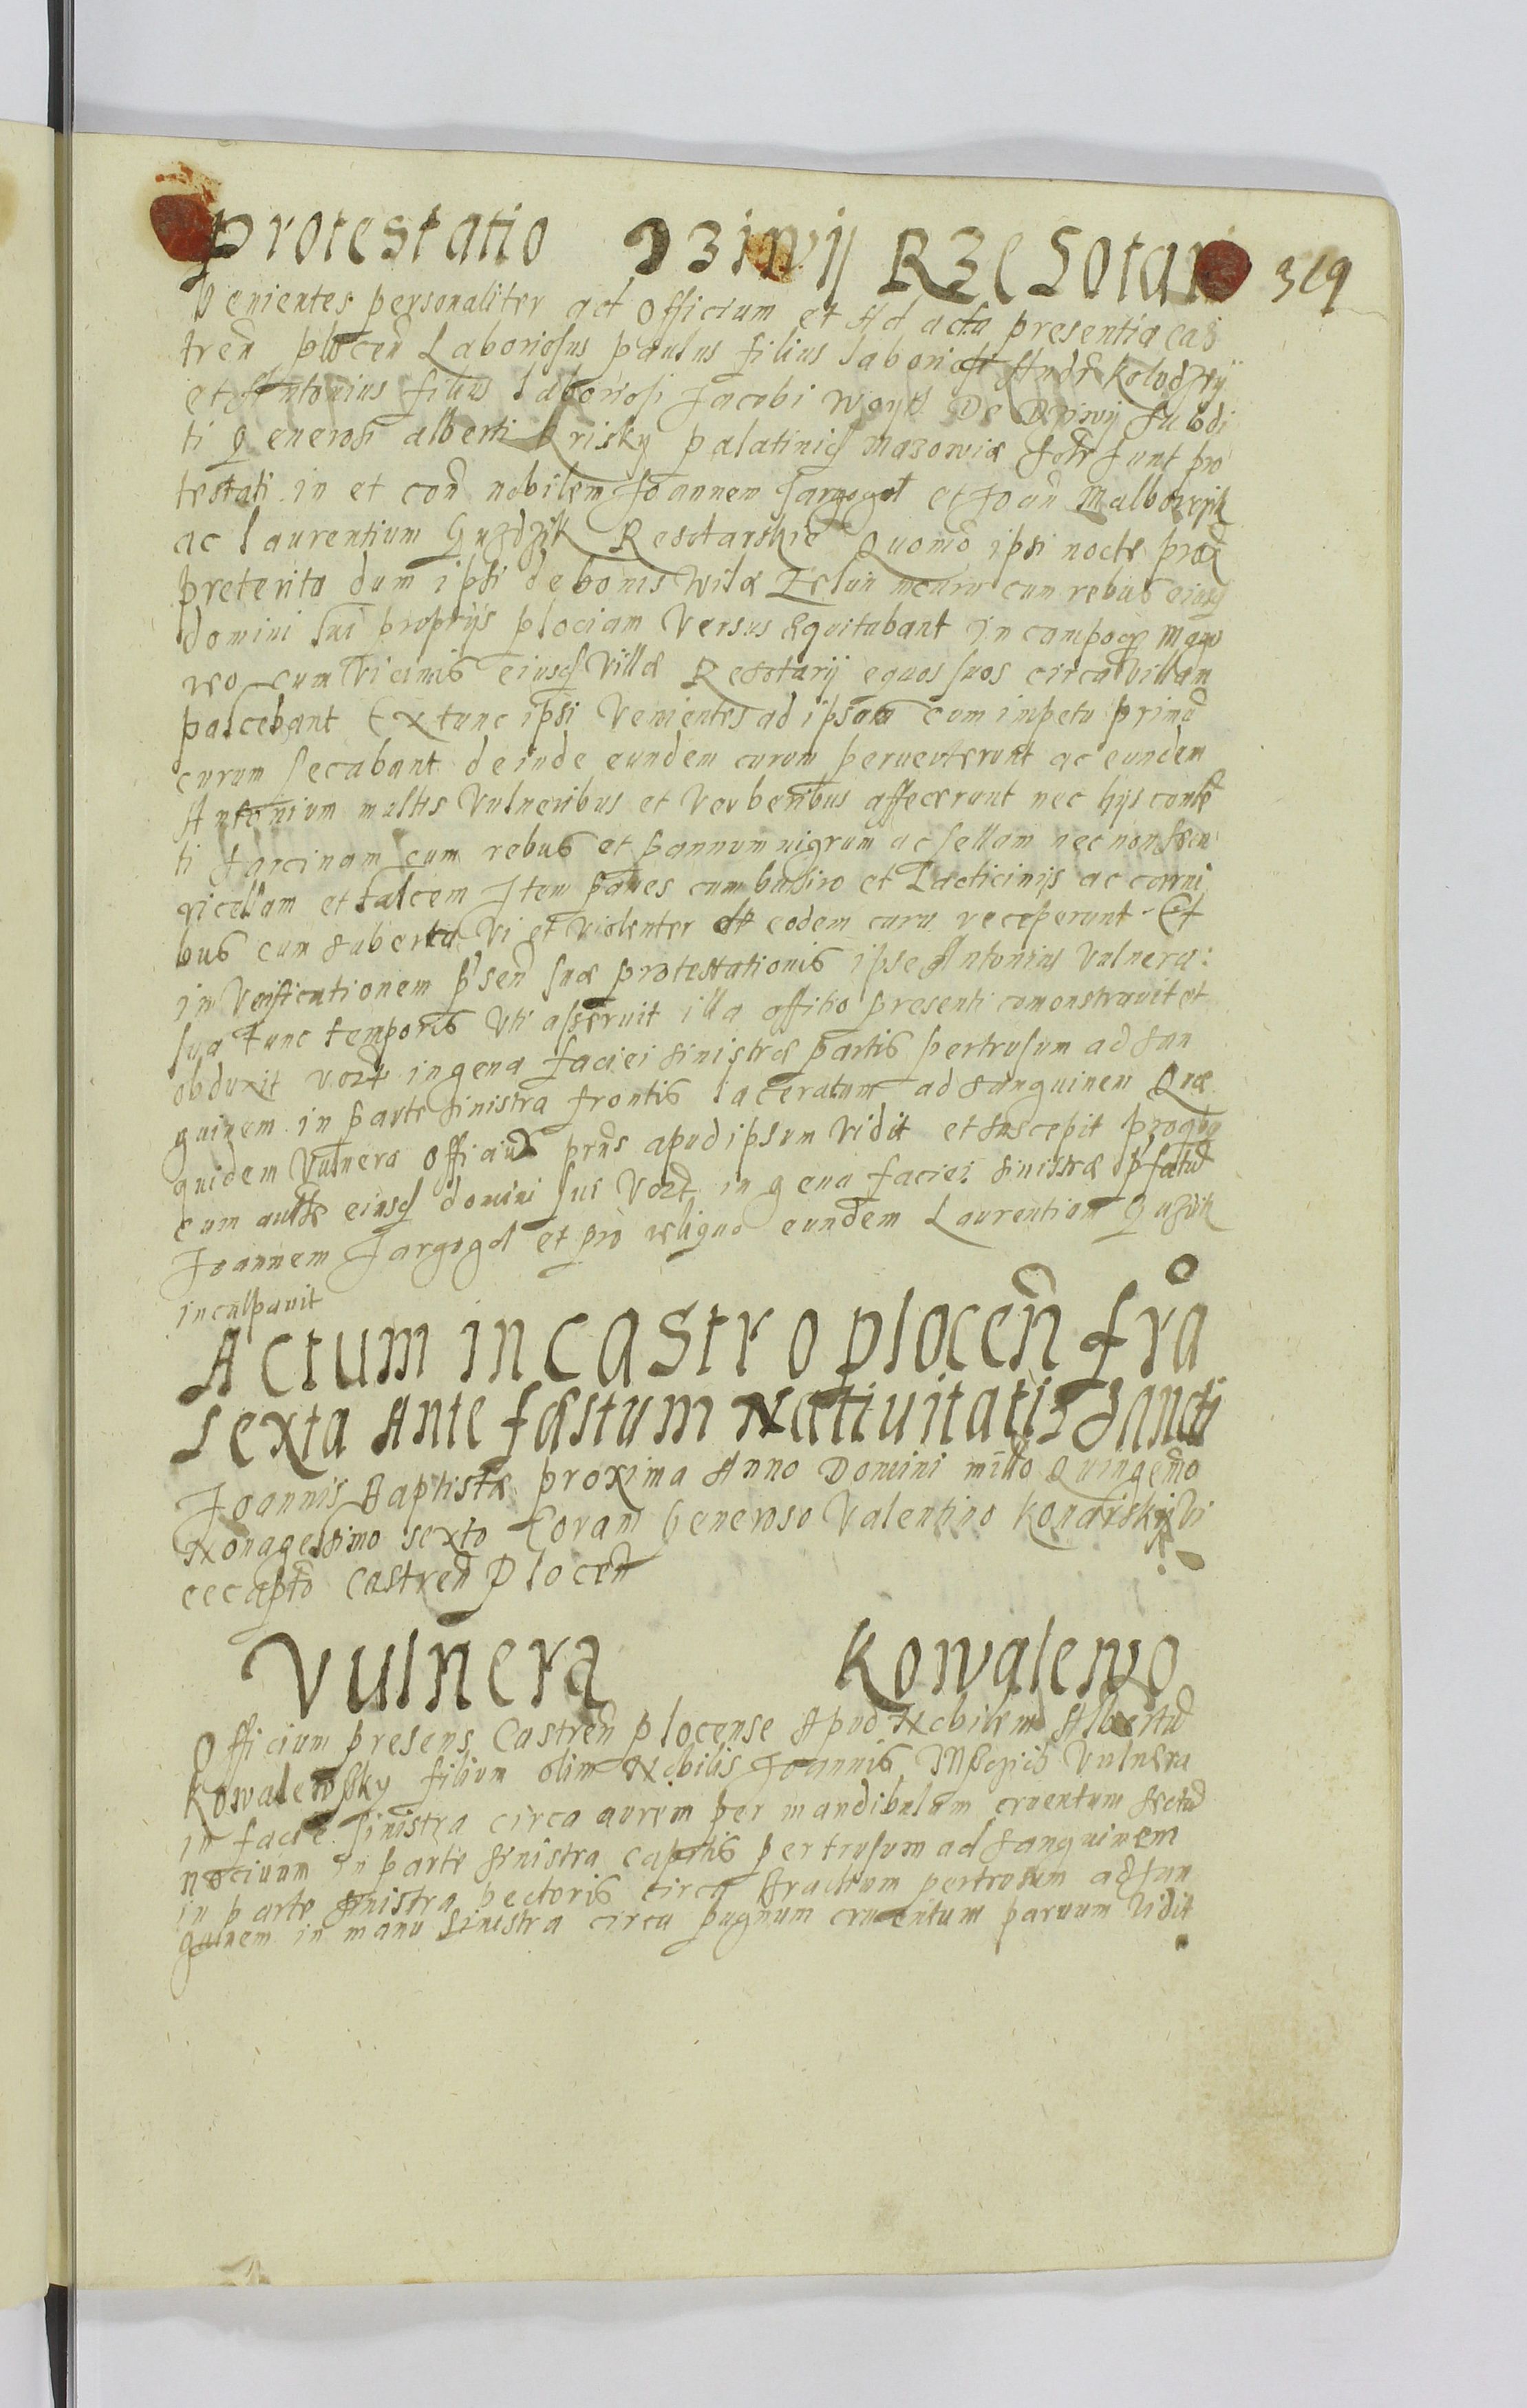 Protestatio Dziwij Rzesotari
319
Venientes personaliter ad officium et Ad acta presentia cas
tren̄ plocen̄ Laboriosus paulus filius laboriosi Andr̄ Kolodzieij
et Antonius filius laboriosi Jacobi Woyt De Dziwij Subdi
ti generosi alberti Krisky palatinid Mazowiæ Solr sunt pro
testati in et con̄ nobilem Joannem Jargogol et Joan̄
ac laurentium Guzdzik Resotarskie Quomō ipsi nocte prox
preterita dum ipsi de bonis Wilæ cum rebus eiusd
domini sui proprijs plociam versus equitabant in campo
wo cum vicinis eiusd villæ Resotarij equos suos circa villam
pascebant Extunc ipsi venientes ad ipsam cum impetu primū
currum secabant deinde eundem curum peruenterunt ac eundem
Antonium multis vulneribus et verberibus affecerunt nec hijs conte
ti sarcinam cum rebus et pannum nigrum ac sellam nec non secu
ricellam et falcem Item panes cum butiro et Lacticinijs ac carni
bus cum suberta vi et violenter de eodem curru receperunt Et
in verificationem p̄sen̄ suæ protestationis ipse Antonius vulnera:
sua tunc temporis vti asseruit illa offitio presenti comonstravit et
obduxit vozt in gena faciei sinistræ partis pertrusum ad san
guinem in parte sinistra frontis laceratum ad sanguinem Quæ
quidem vulnera officiū prn̄s apud ipsum vidit et suscepit pro quo
cum aultte eiusd domini sui vozt in gena faciei sinistræ p̄fatū
Joannem Jargogol et pro reliquo eundem Laurentium Guzdik
inculpavit
Actum in castro plocen̄ fr̊a
sexta Ante festum Nativitatis Sancti
Joannis Baptistæ proxima Anno Domini millō Quingemō
Nonagessimo sexto Coram Generoso Valentino Konarski Vi
cecaptō Castren̄ Plocen̄
Vulnera Kowalewo
Officium presens Castren̄ plocense Apud Nobilem Albertū
Kowalewsky filium olim Nobilis Joannis vulnera
in facie sinistra circa aurem per mandibulum cruentum sectū
nocivum in parte sinistra capitis pertrusum ad sanguinem
in parte sinistra pectoris circa brachium pertrusum ad san
guinem in manu sinistra circa pugnum cruentum parvum vidit